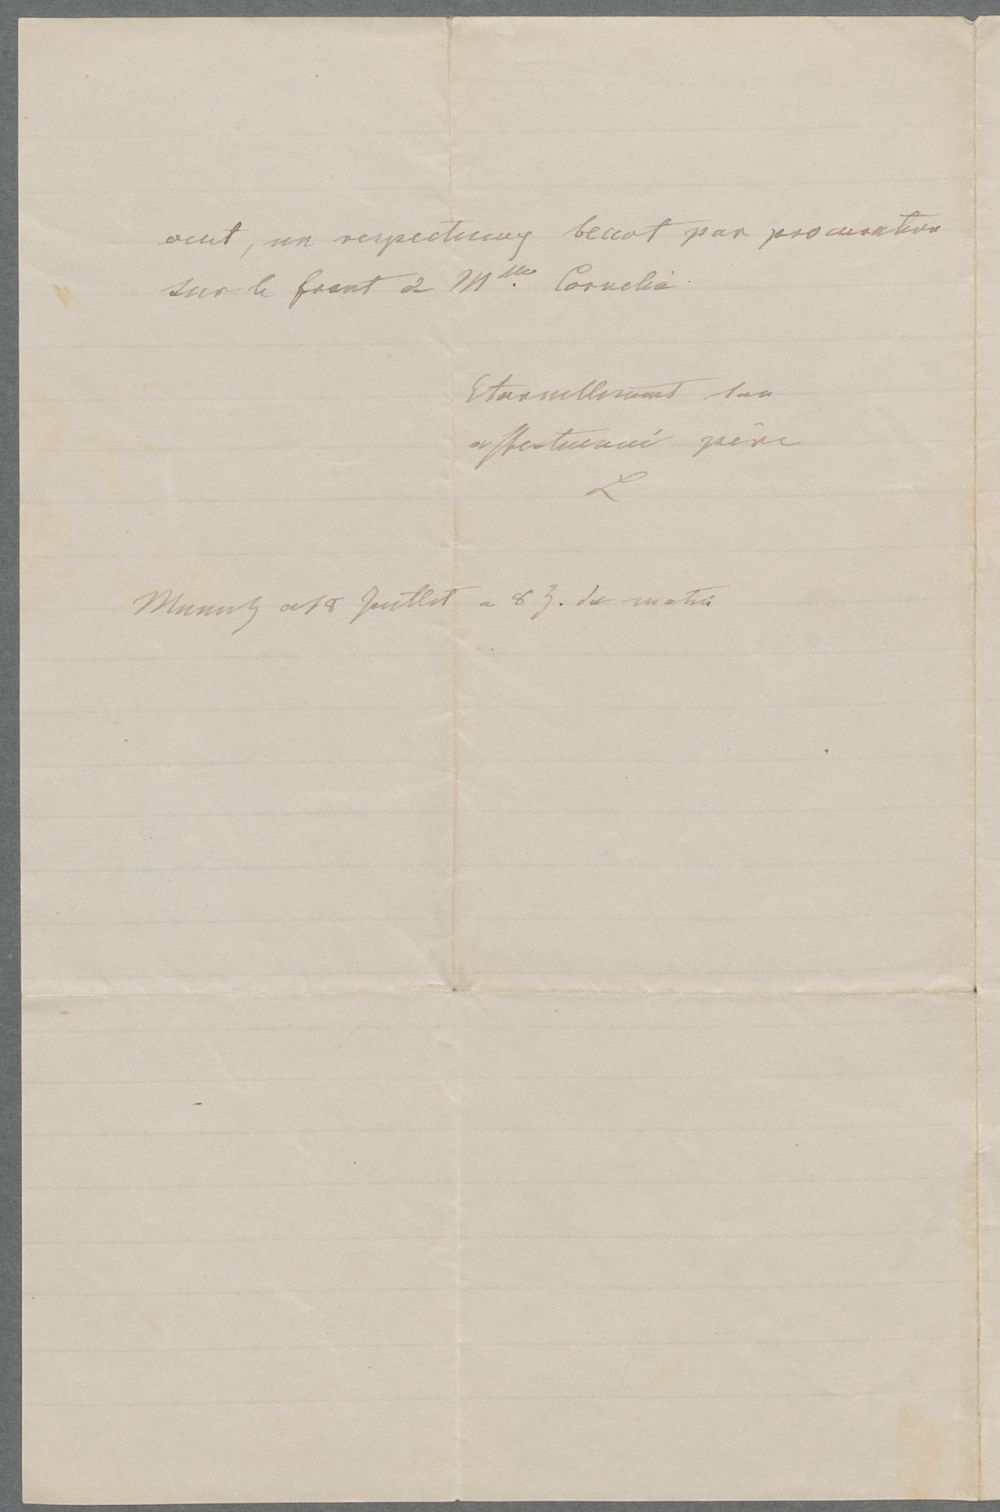 un respectueux becot par procuration
sur le front à M^lle. Cornelia.
Eternellement ton
affectueux père
L
Juillet a 8 h. du matin